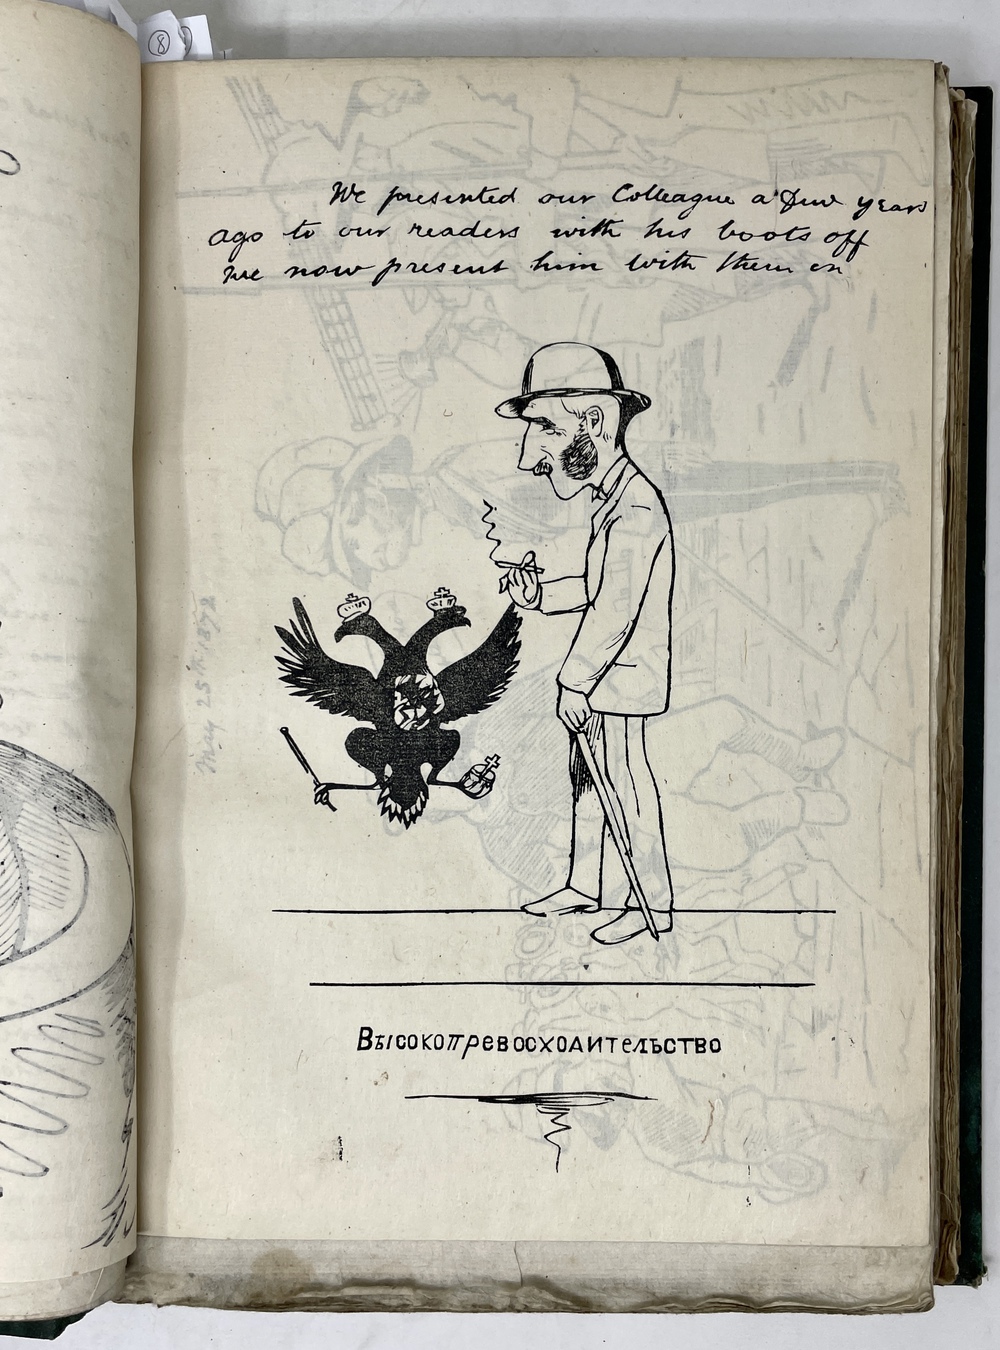 8
We presented our Colleague a few years
ago to our readers with his boots off
we now present him with them on
May 25th 1872
Высокопревосходительство